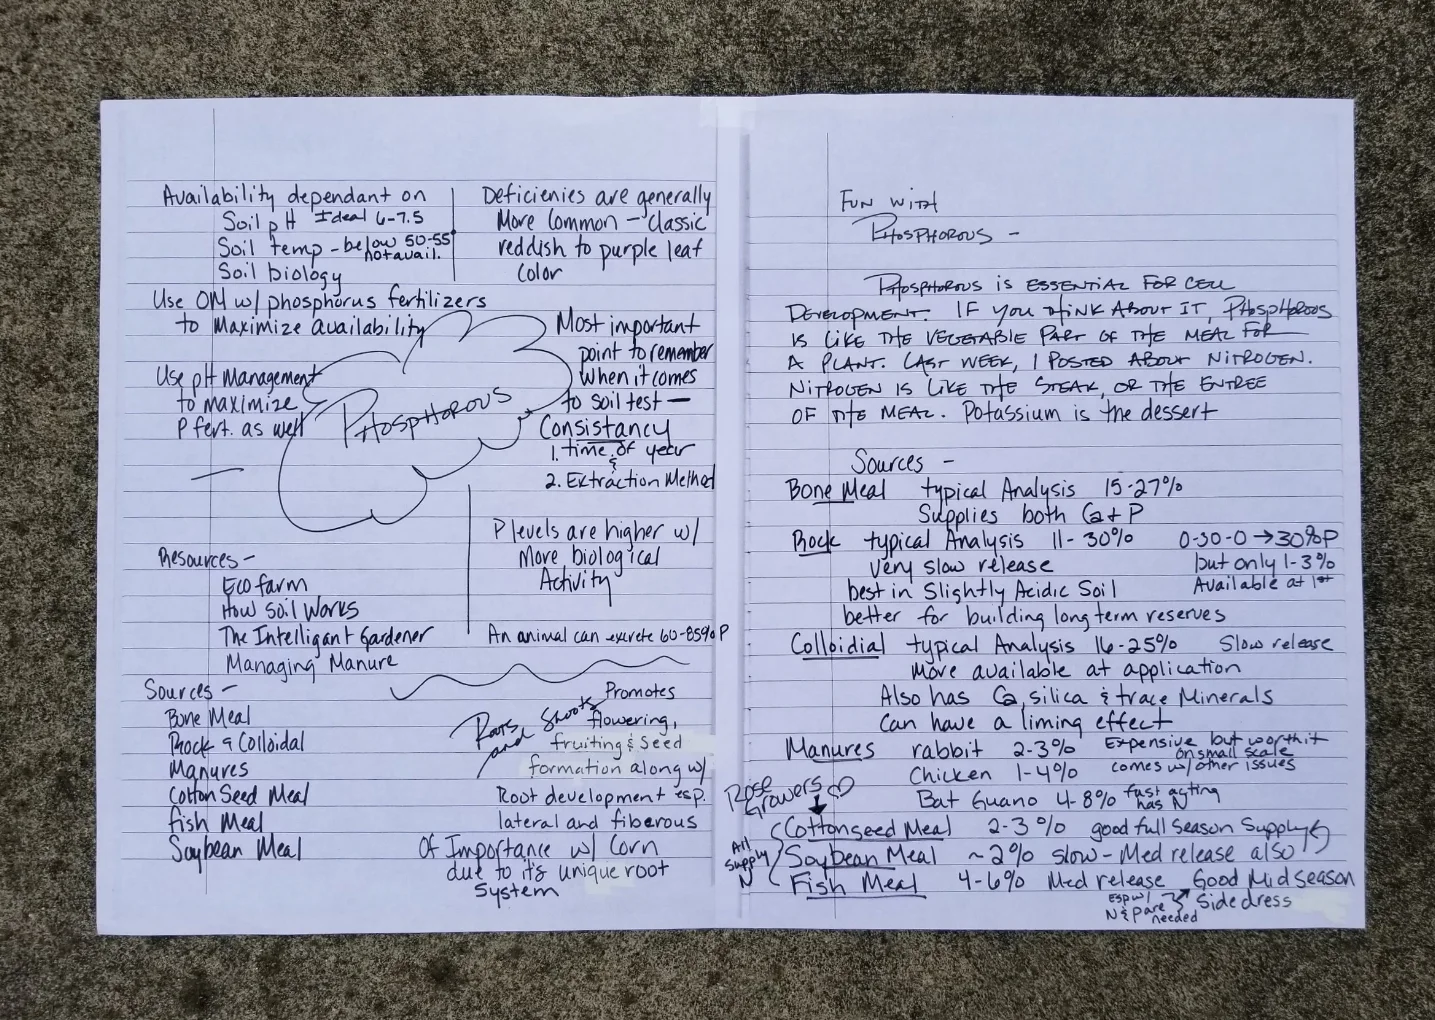 Availability dependant on
Soil pH Ideal 6-7.5
Soil temp - below 50-55
not avail.
Soil biology
Use OM w/ phosphorus fertilizers
to Maximize availability
Use pH Management
to maximize
P fert. as well
Deficienies are generally
More Common - Classic
reddish to purple leaf
Color
PHOSPHOROUS
Most important
point to remember
when it comes
to soil test —
Consistancy
1. time of year
&
2. Extraction Method
P levels are higher w/
More biological
Activity
An animal can excrete 60-85% P
Resources -
Eco farm
How Soil Works
The Intelligant Gardener
Managing Manure
Sources -
Bone Meal
Rock & Colloidal
Manures
Cotton Seed Meal
fish Meal
Soybean Meal
Roots and Shoots
Promotes
flowering,
fruiting & Seed
formation along w/
Root development esp.
lateral and fiberous
Of Importance w/ Corn
due to it's unique root
System
FUN WITH
PHOSPHOROUS -
PHOSPHOROUS IS ESSENTIAL FOR CELL
DEVELOPMENT. IF YOU THINK ABOUT IT, PHOSPHOROUS
IS LIKE THE VEGETABLE PART OF THE MEAL FOR
A PLANT. LAST WEEK, I POSTED ABOUT NITROGEN.
NITROGEN IS LIKE THE STEAK, OR THE ENTREE
OF THE MEAL. Potassium is the dessert
Sources -
Bone Meal typical Analysis 15-27%
Supplies both Ca & P
Rock typical Analysis 11-30% 0-30-0 → 30% P
very slow release but only 1-3%
best in Slightly Acidic Soil Available at 1st
better for building long term reserves
Colloidial typical Analysis 16-25% Slow release
More available at application
Also has Ca, silica & trace Minerals
Can have a liming effect
Manures rabbit 2-3% Expensive but worth it
on small scale
Chicken 1-4% comes w/ other issues
Bat Guano 4-8% fast acting
has N
Rose
Growers
Cottonseed Meal 2-3% good full Season Supply
All
Supply
N
Soybean Meal ~2% slow-Med release also
Fish Meal 4-6% Med release Good Mid season
Side dress
Esp w/
N & P are
needed